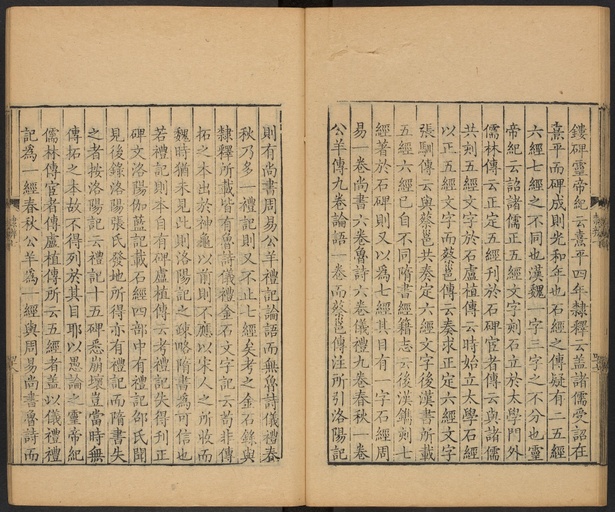 鏤碑靈帝紀云熹平四年隸釋云蓋諸儒受詔在
熹平而碑成則光和年也石經之傳疑有二五經
六經七經之不同也漢魏一字三字之不分也靈
帝紀云詔諸儒正五經文字刻石立於太學門外
儒林傳云正定五經刊於石碑宦者傳云與諸儒
共刻五經文字於石盧植傳云時始立太學石經
以正五經文字而蔡邕傳云奏求正定六經文字
張馴傳云與蔡邕共奏定六經文字後漢書所載
五經六經已自不同隋書經籍志云後漢鐫刻七
經著於石碑則又以為七經其目有一字石經周
易一卷尚書六卷魯詩六卷儀禮九卷春秋一卷
公羊傳九卷論語一卷而蔡邕傳注所引洛陽記
則有尚書周易公羊禮記論語而無魯詩儀禮春
秋乃多一禮記則又不止七經矣考之金石錄與
隸釋所載皆有魯詩儀禮金石文字記云苟非傳
拓之本出於神龜以前則不應以宋人之所收而
魏時猶未見此則洛陽記之疎略隋書為可信也
若禮記則本自有碑盧植傳云考禮記失得刊正
碑文洛陽伽藍記載石經四部中有禮記邵氏聞
見後錄洛陽張氏發地所得亦有禮記而隋書失
之者按洛陽記云禮記十五碑悉崩壞豈當時無
傳拓之本故不得列於其目耶以愚論之靈帝紀
儒林傳宦者傳盧植傳所云五經者蓋以儀禮禮
記為一經春秋公羊為一經與周易尚書魯詩而